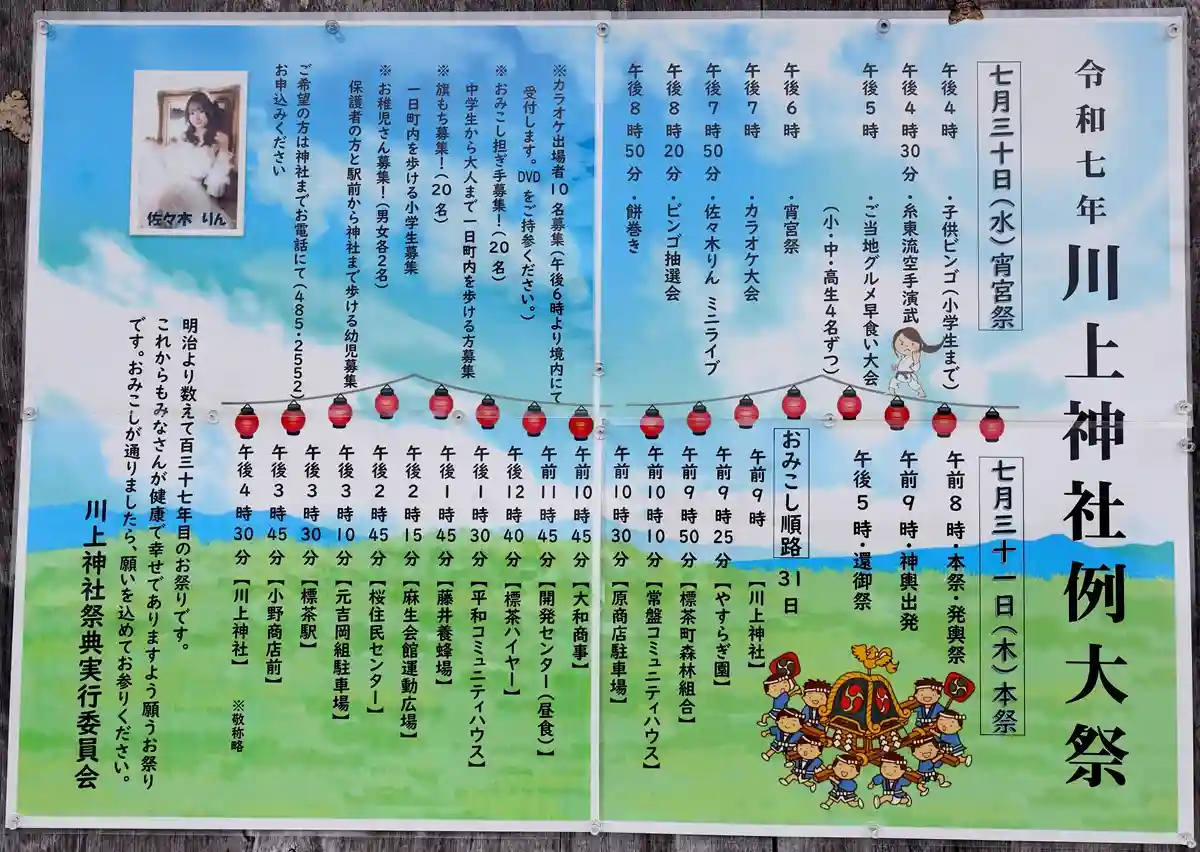 令和七年 川上神社例大祭
七月三十日(水)宵宮祭
午後4時 ・子供ビンゴ(小学生まで)
午後4時30分・糸東流空手演武
午後5時 ・ご当地グルメ早食い大会
(小・中・高生4名ずつ)
午後6時 ・宵宮祭
午後7時 ・カラオケ大会
午後7時50分・佐々木りん ミニライブ
午後8時20分・ビンゴ抽選会
午後8時50分・餅巻き
※カラオケ出場者10名募集(午後6時より境内にて
受付します。DVDをご持参ください。)
※おみこし担ぎ手募集!(20名)
中学生から大人まで一日町内を歩ける方募集
※旗もち募集!(20名)
一日町内を歩ける小学生募集
※お稚児さん募集!(男女各2名)
保護者の方と駅前から神社まで歩ける幼児募集
ご希望の方は神社までお電話にて(485・2552)
お申込みください
佐々木 りん
七月三十一日(木)本祭
午前8時・本祭・発輿祭
午前9時・神輿出発
午後5時・還御祭
おみこし順路 31日
午前9時 【川上神社】
午前9時25分【やすらぎ園】
午前9時50分【標茶町森林組合】
午前10時10分【常盤コミュニティハウス】
午前10時30分【原商店駐車場】
午前10時45分【大和商事】
午前11時45分【開発センター(昼食)】
午後12時40分【標茶ハイヤー】
午後1時30分【平和コミュニティハウス】
午後1時45分【藤井養蜂場】
午後2時15分【麻生会館運動広場】
午後2時45分【桜住民センター】
午後3時10分【元吉岡組駐車場】
午後3時30分【標茶駅】
午後3時45分【小野商店前】
午後4時30分【川上神社】
※敬称略
明治より数えて百三十七年目のお祭りです。
これからもみなさんが健康で幸せでありますよう願うお祭り
です。おみこしが通りましたら、願いを込めてお参りください。
川上神社祭典実行委員会